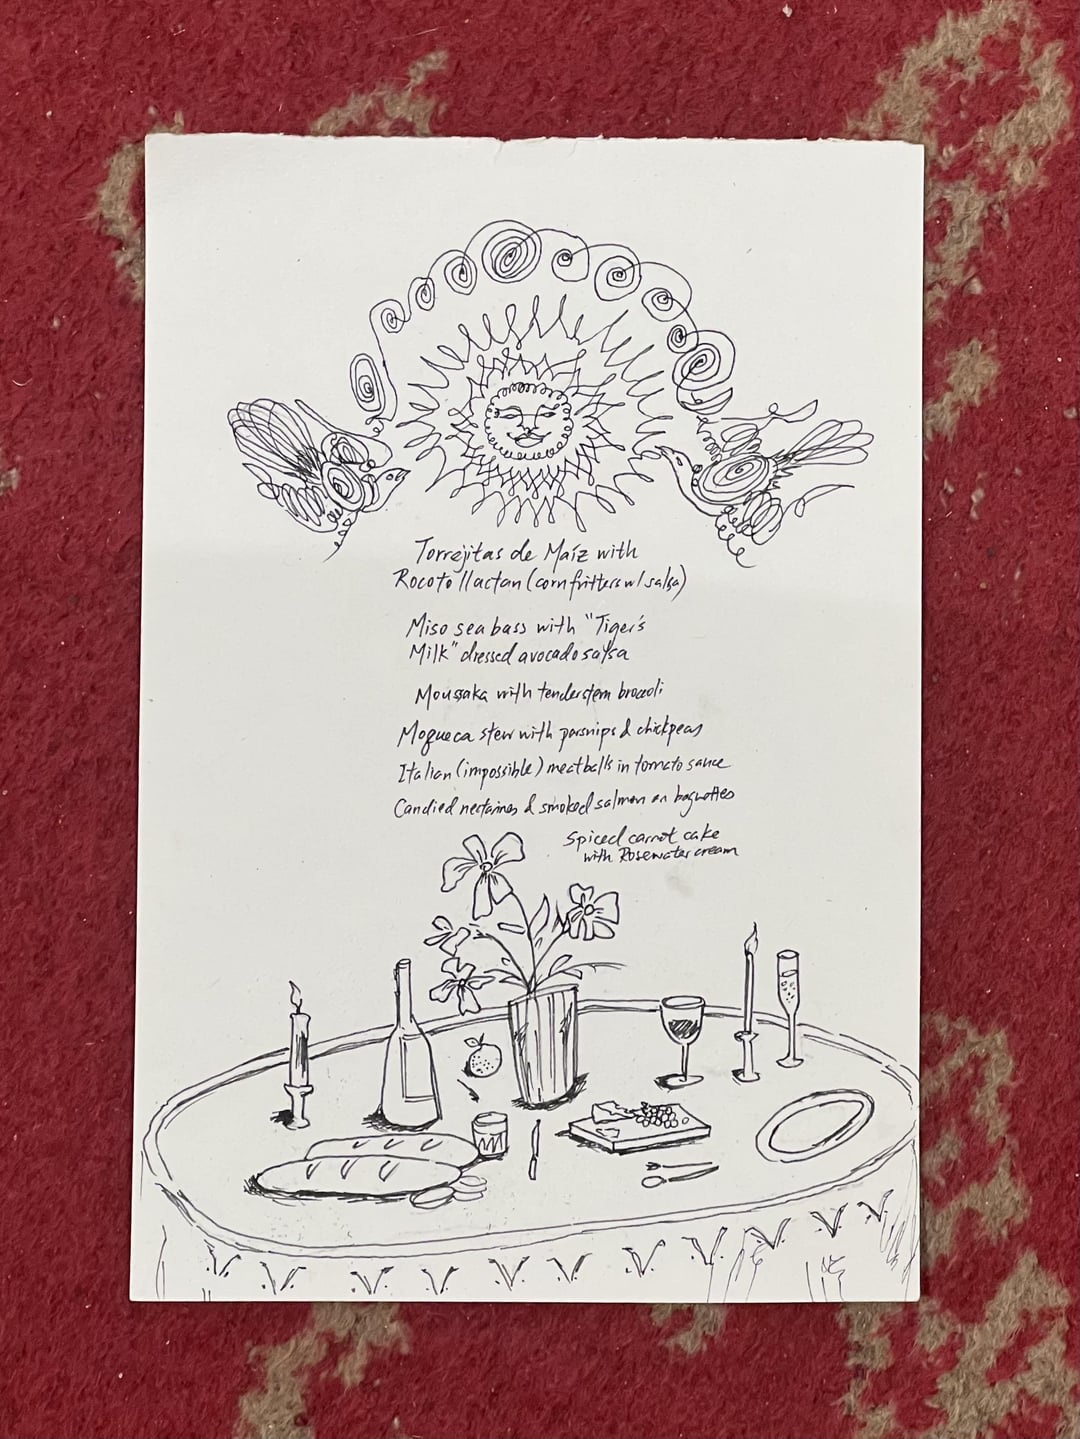 Torrejitas de Maíz with
Rocoto llactan (corn fritters w/ salsa)
Miso sea bass with "Tiger's
Milk" dressed avocado salsa
Moussaka with tenderstem broccoli
Moqueca stew with parsnips & chickpeas
Italian (impossible) meatballs in tomato sauce
Candied nectarines & smoked salmon on baguettes
Spiced carrot cake
with Rosewater cream